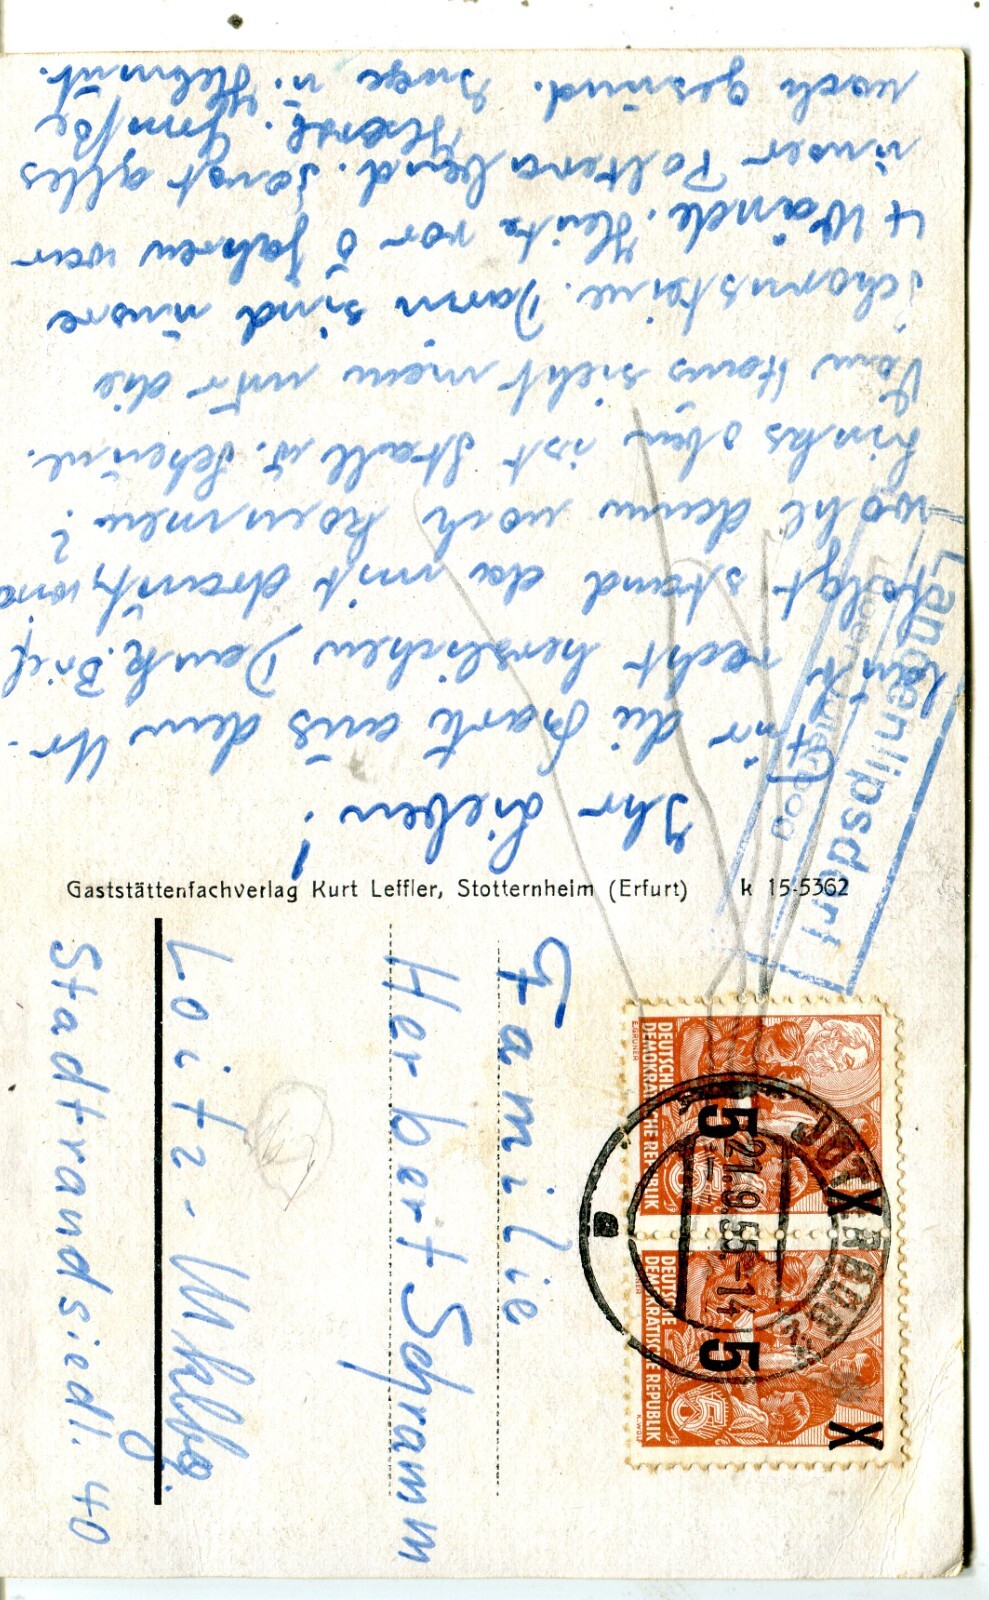 Ihr Lieben!
Für die Karte aus dem Ur-
laub recht herzlichen Dank. Brief
folgt stand da mit drauf, wird
wohl dann noch kommen?
Links oben ist Stall u. Scheune.
Vom Haus sieht man nur die
Schornsteine. Dann sind unsre
4 Wände. Heute vor 5 Jahren war
unser Polterabend. Sonst alles
noch gesund. Herzl. Grüße
Inge u. Helmut.
Gaststättenfachverlag Kurt Leffler, Stotternheim (Erfurt) k 15-5362
Langenlipsdorf
über Jüterbog
DEUTSCHE
DEMOKRATISCHE REPUBLIK
5
X
DEUTSCHE
DEMOKRATISCHE REPUBLIK
5
X
JÜTERBOG
21.9.55.-14
Familie
Herbert Schramm
Loitz-Mklbg.
Stadtrandsiedl. 40